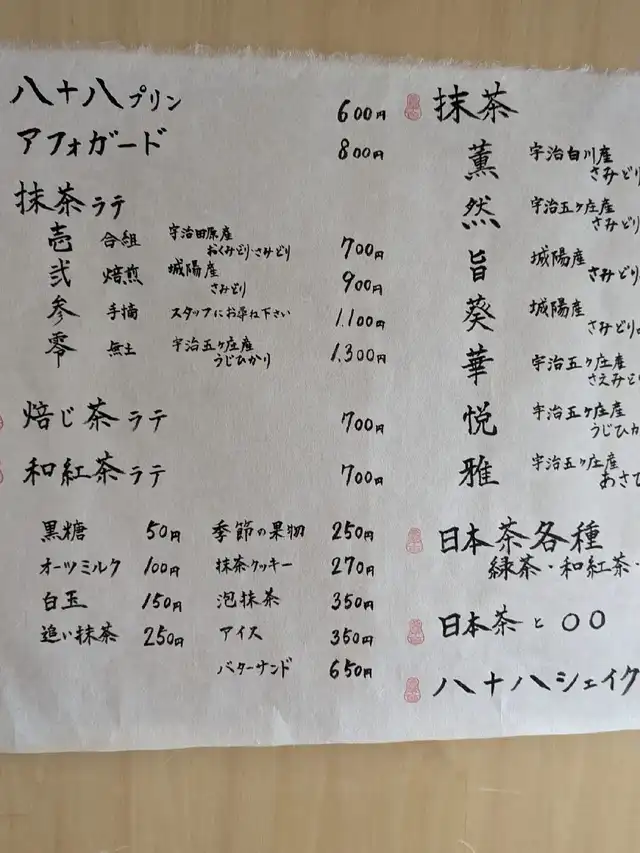 八十八プリン 600円
アフォガード 800円
抹茶ラテ
壱 合組 宇治田原産 おくみどり・さみどり 700円
弐 焙煎 城陽産 さみどり 900円
参 手摘 スタッフにお尋ね下さい 1,100円
零 無土 宇治五ヶ庄産 うじひかり 1,300円
焙じ茶ラテ 700円
和紅茶ラテ 700円
黒糖 50円
オーツミルク 100円
白玉 150円
追い抹茶 250円
季節の果物 250円
抹茶クッキー 270円
泡抹茶 350円
アイス 350円
バターサンド 650円
抹茶
薫 宇治白川産 さみどり
然 宇治五ヶ庄産 さみどり
旨 城陽産 さみどり
葵 城陽産 さみどり
華 宇治五ヶ庄産 さえみど
悦 宇治五ヶ庄産 うじひか
雅 宇治五ヶ庄産 あさひ
日本茶各種
緑茶・和紅茶・
日本茶と〇〇
八十八シェイク